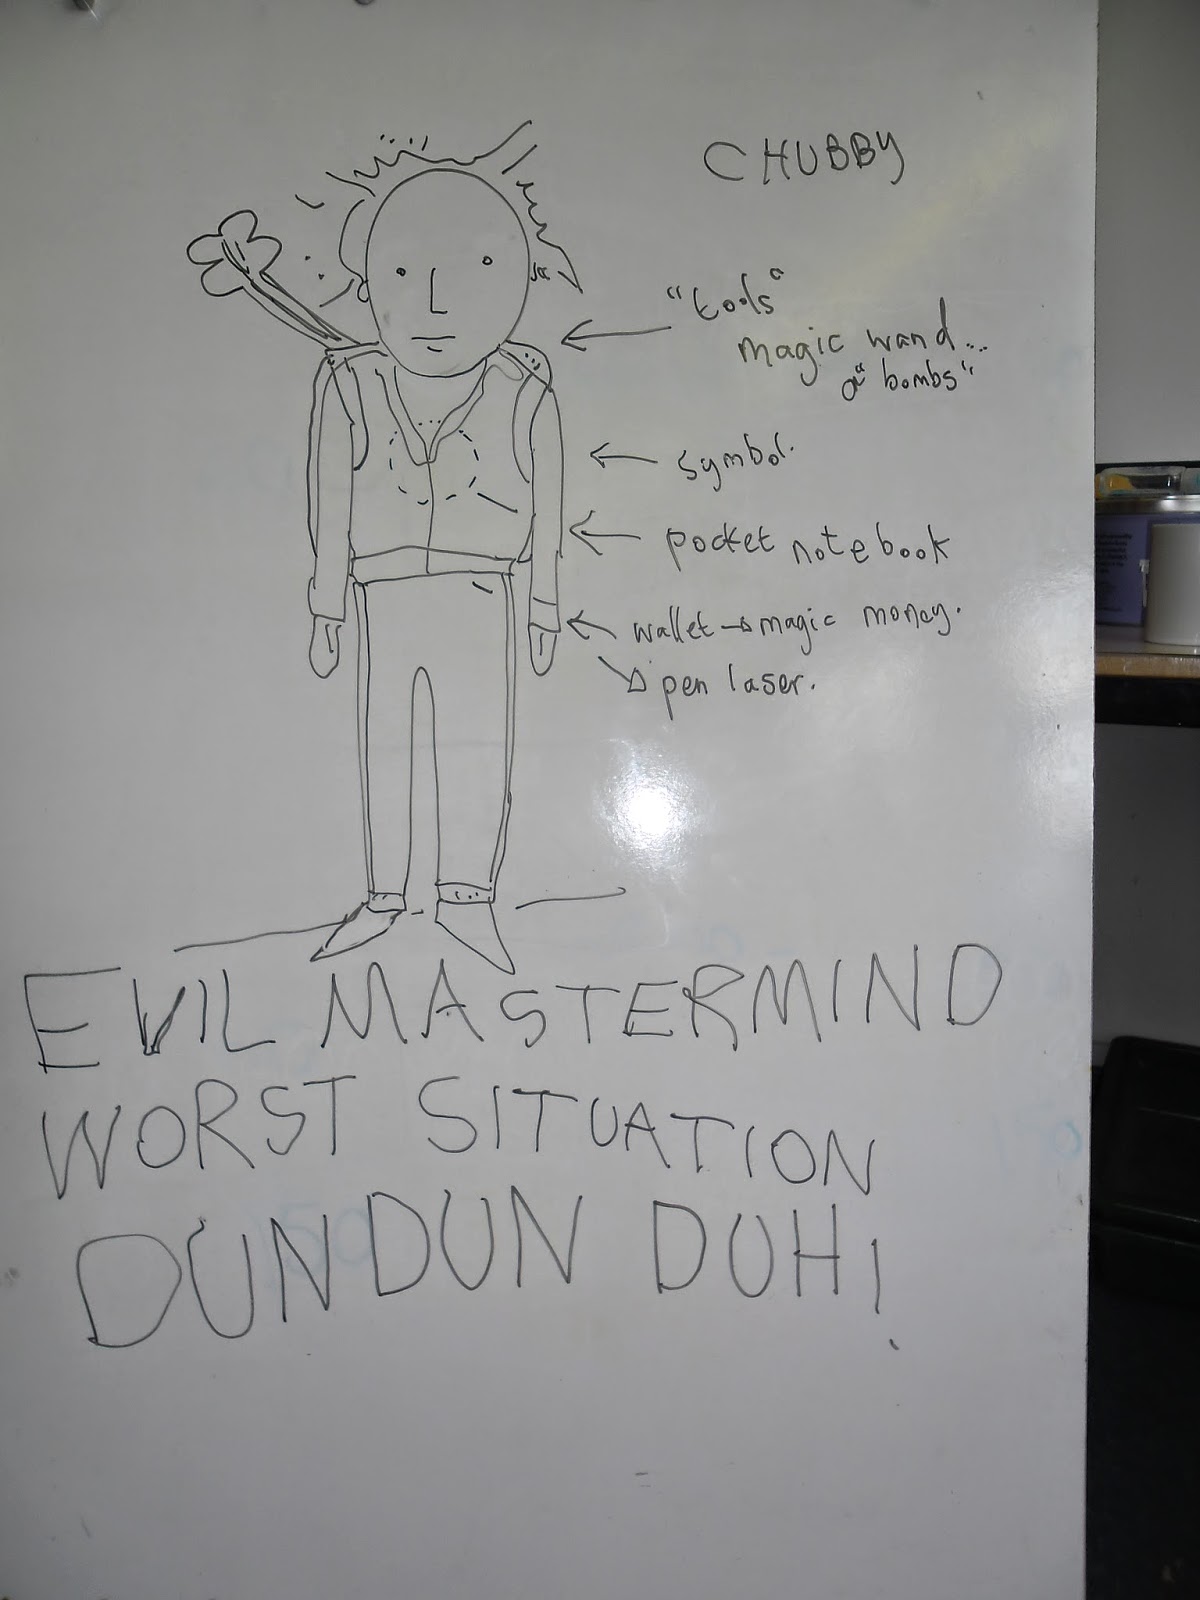 CHUBBY
"tools"
magic wand...
"bombs"
symbol.
pocket notebook
wallet → magic money.
pen laser.
EVIL MASTERMIND
WORST SITUATION
DUN DUN DUH!